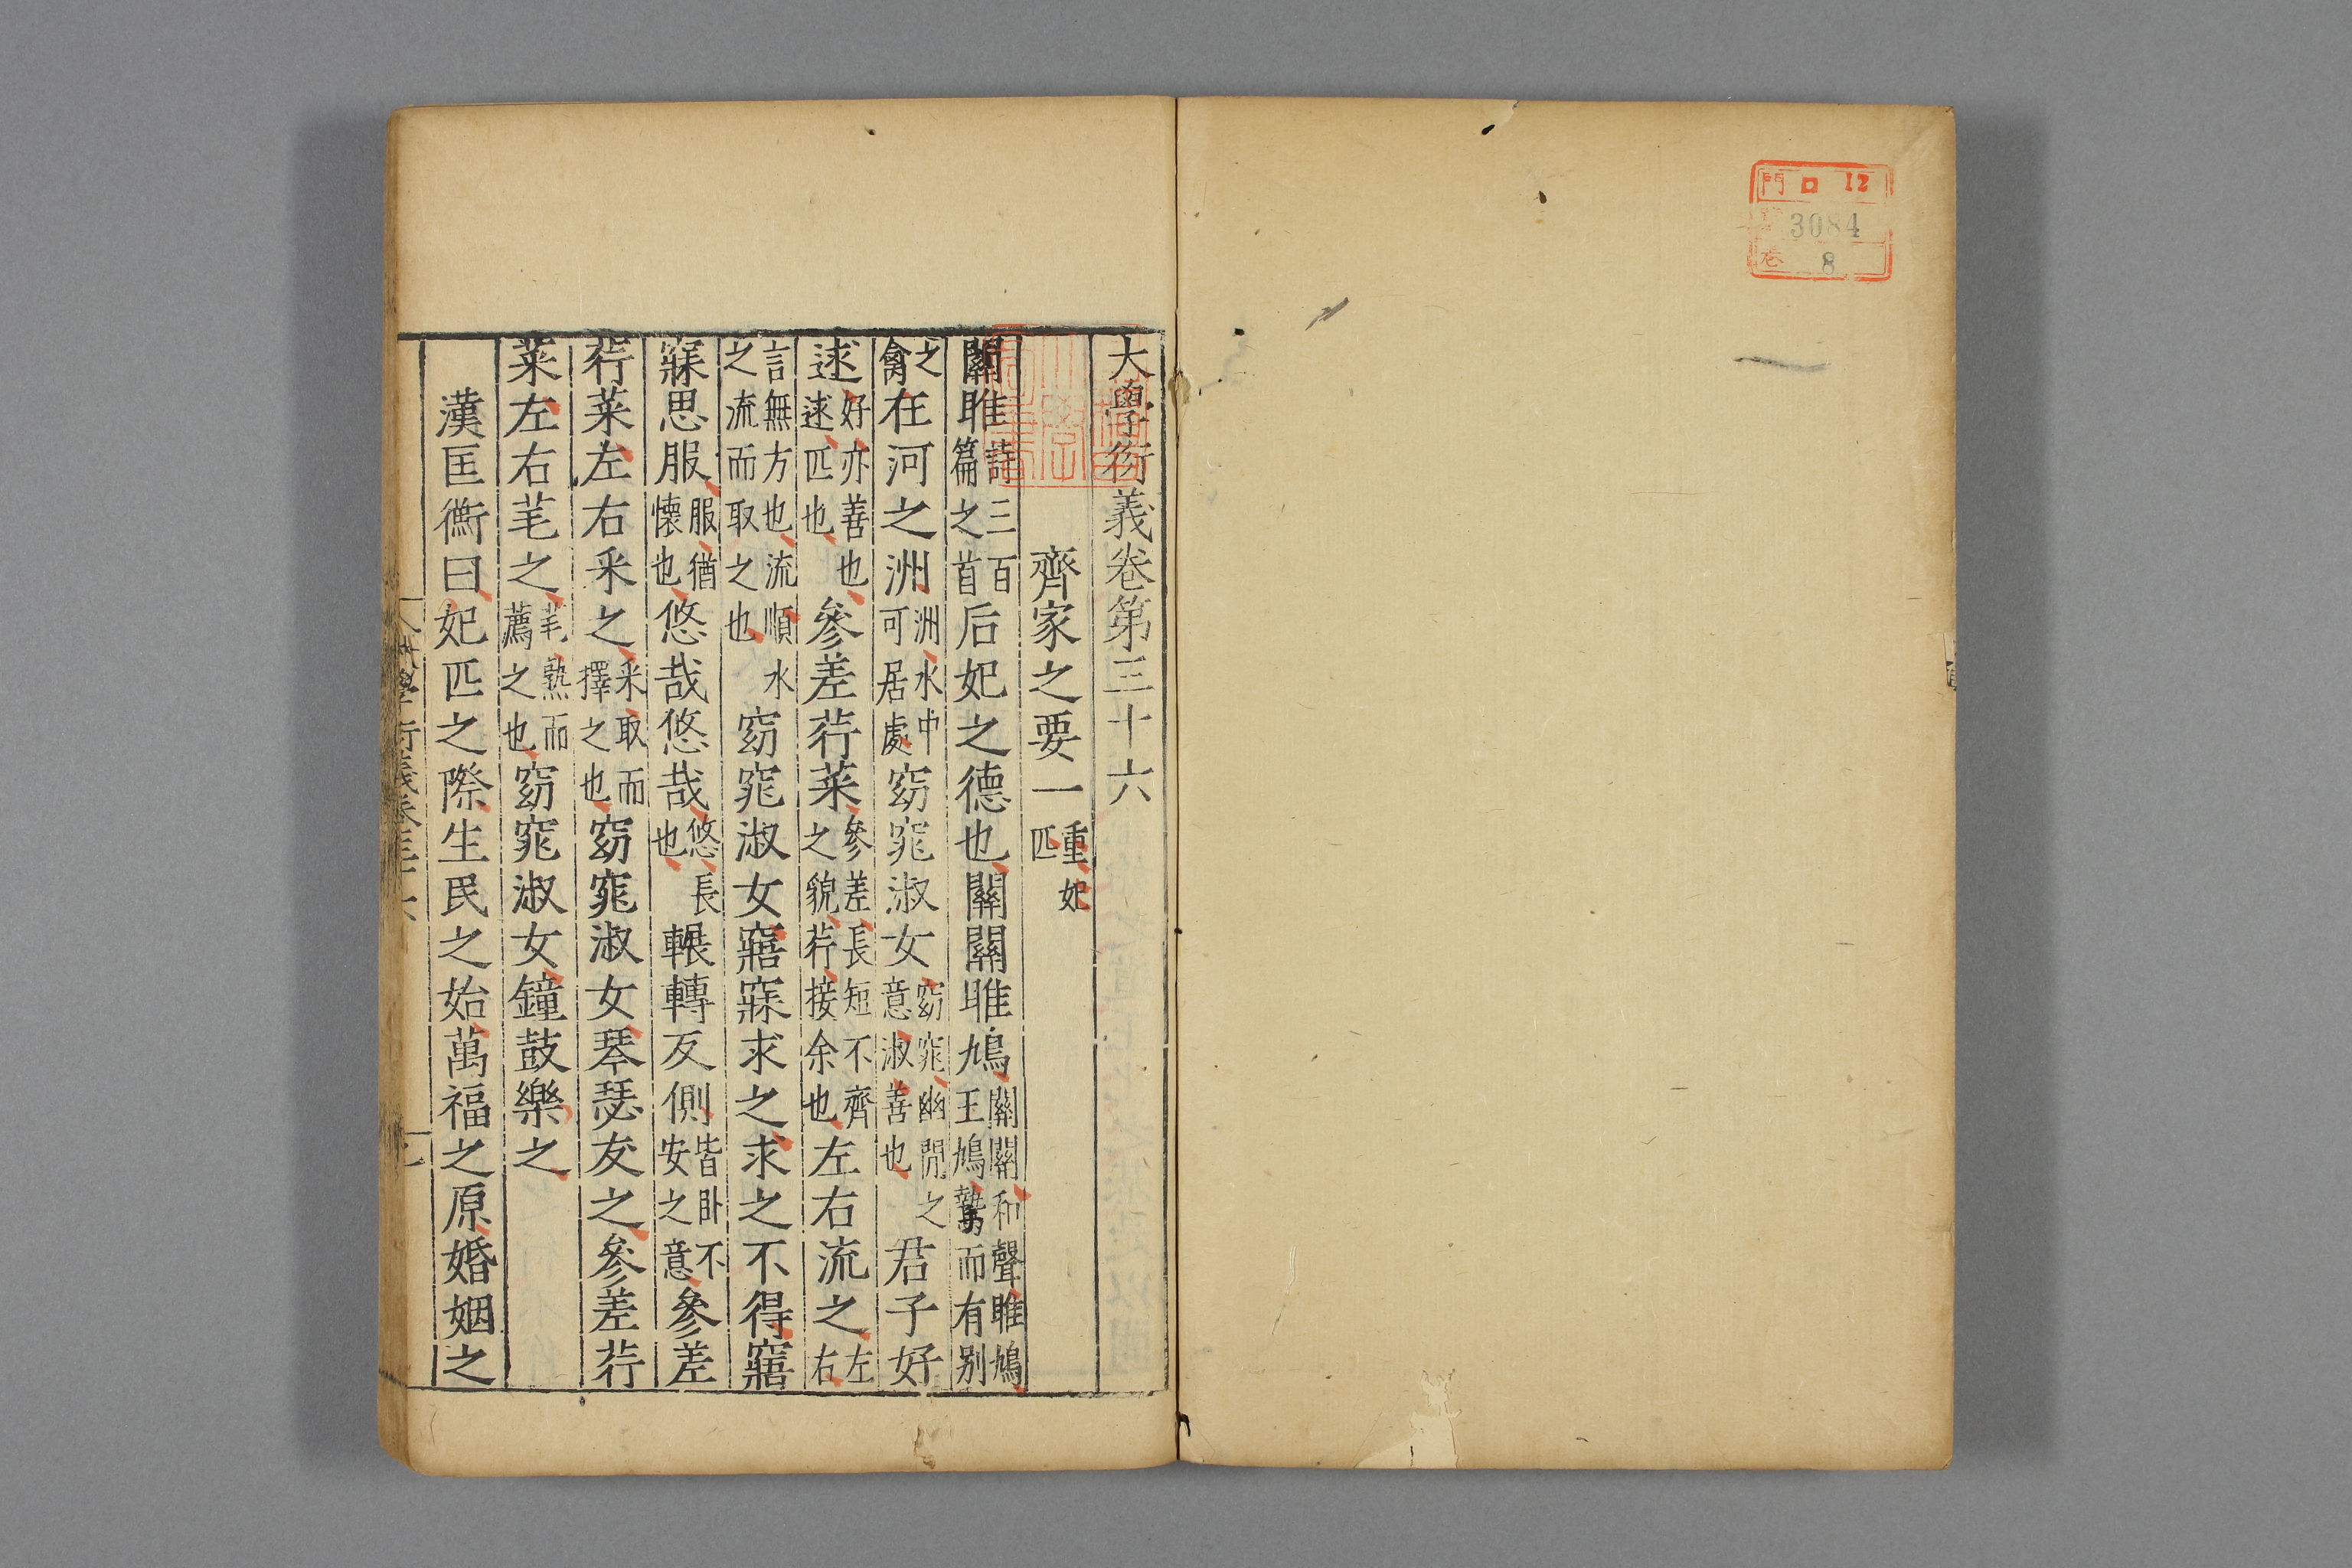 門 ロ 12
號 3084
卷 8
大學衍義卷第三十六
齊家之要一 重妃匹
關雎 詩三百篇之首 后妃之德也關關雎鳩 關關和聲雎鳩王鳩鷙而有别
之禽 在河之洲 洲水中可居處 窈窕淑女 窈窕幽閒之意淑善也 君子好
逑 好亦善也逑匹也 參差荇菜 參差長短不齊之貌荇接余也 左右流之 左右
言無方也流順水之流而取之也 窈窕淑女寤寐求之求之不得寤
寐思服 服猶懷也 悠哉悠哉 悠長也 輾轉反側 皆卧不安之意 參差
荇菜左右采之 采取而擇之也 窈窕淑女琴瑟友之參差荇
菜左右芼之 芼熟而薦之也 窈窕淑女鐘鼓樂之
漢匡衡曰妃匹之際生民之始萬福之原婚姻之
大學衍義卷三十六